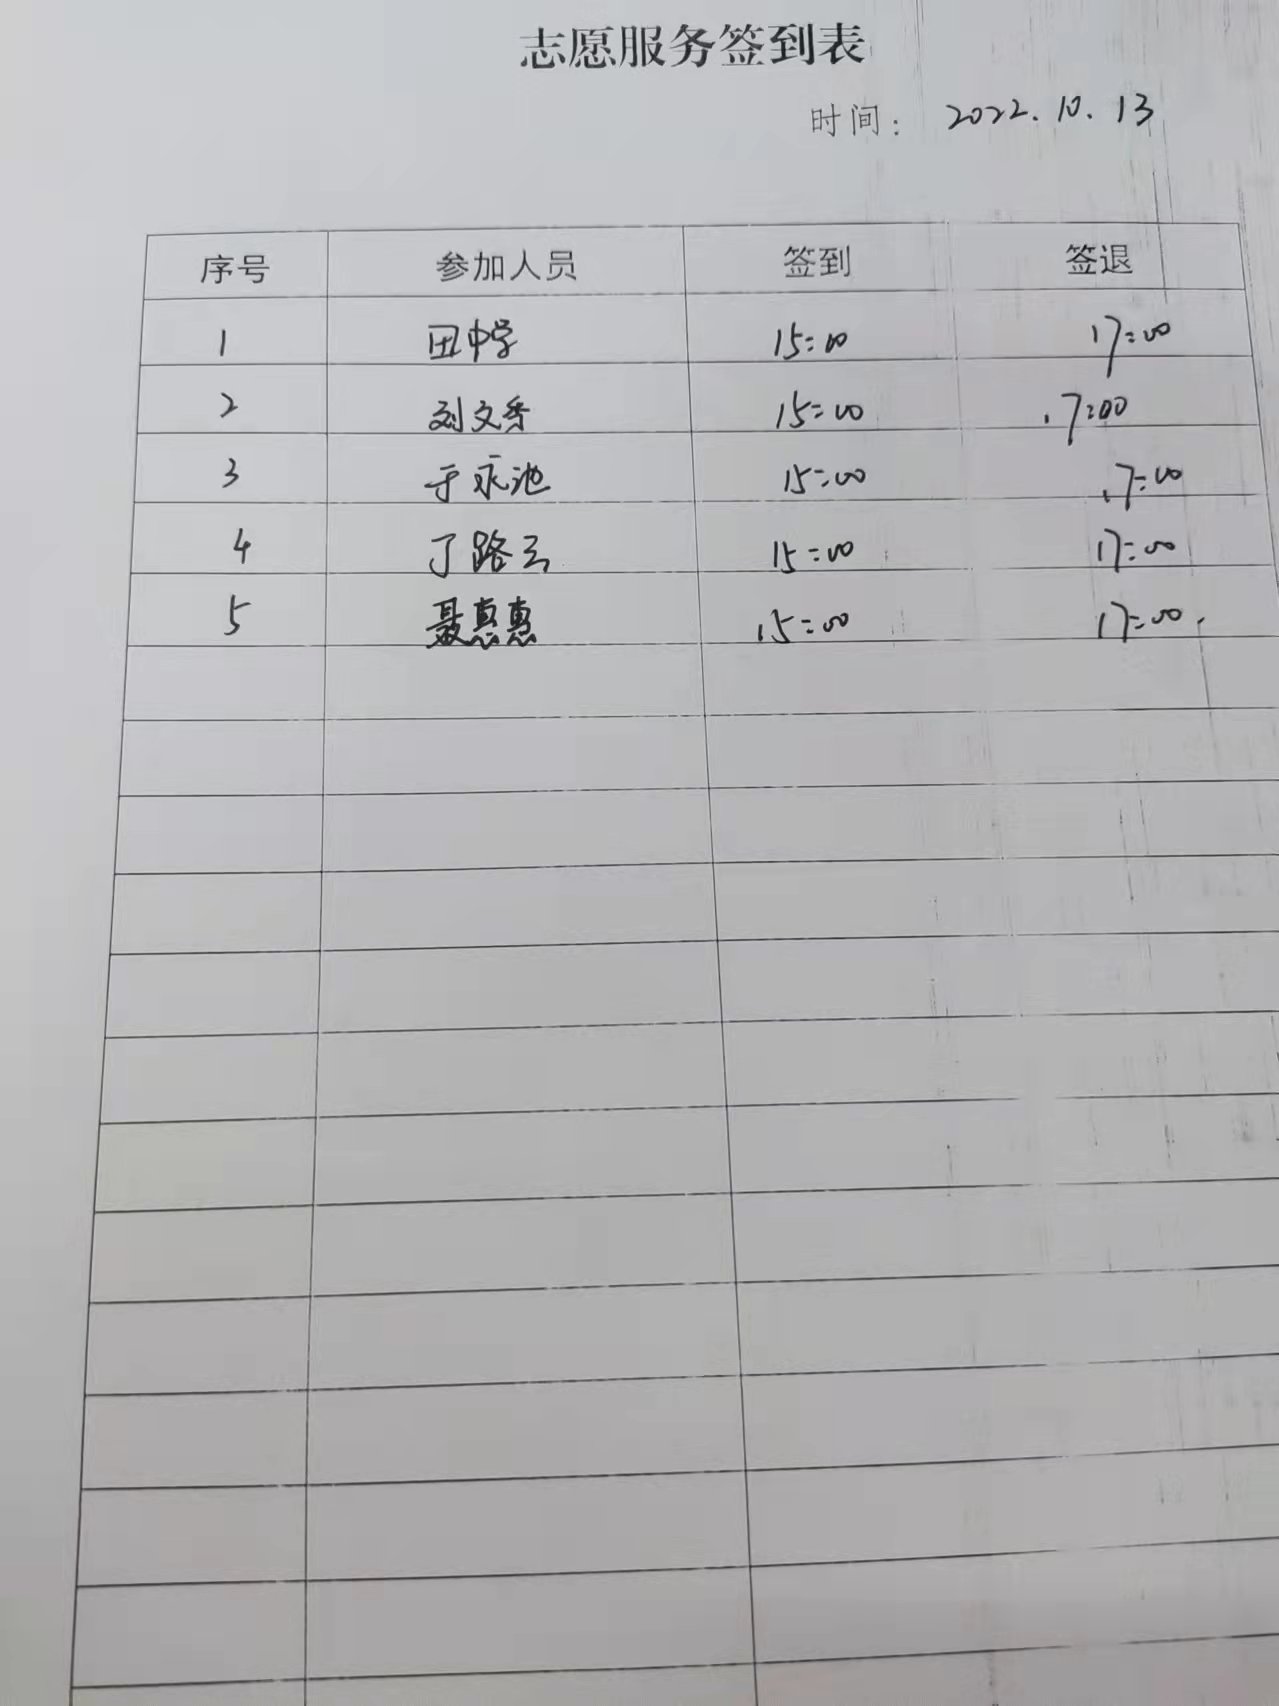 志愿服务签到表
时间： 2022.10.13
序号 参加人员 签到 签退
1 田中学 15:00 17:00
2 刘文香 15:00 17:00
3 于永池 15:00 17:00
4 丁路云 15:00 17:00
5 聂惠惠 15:00 17:00